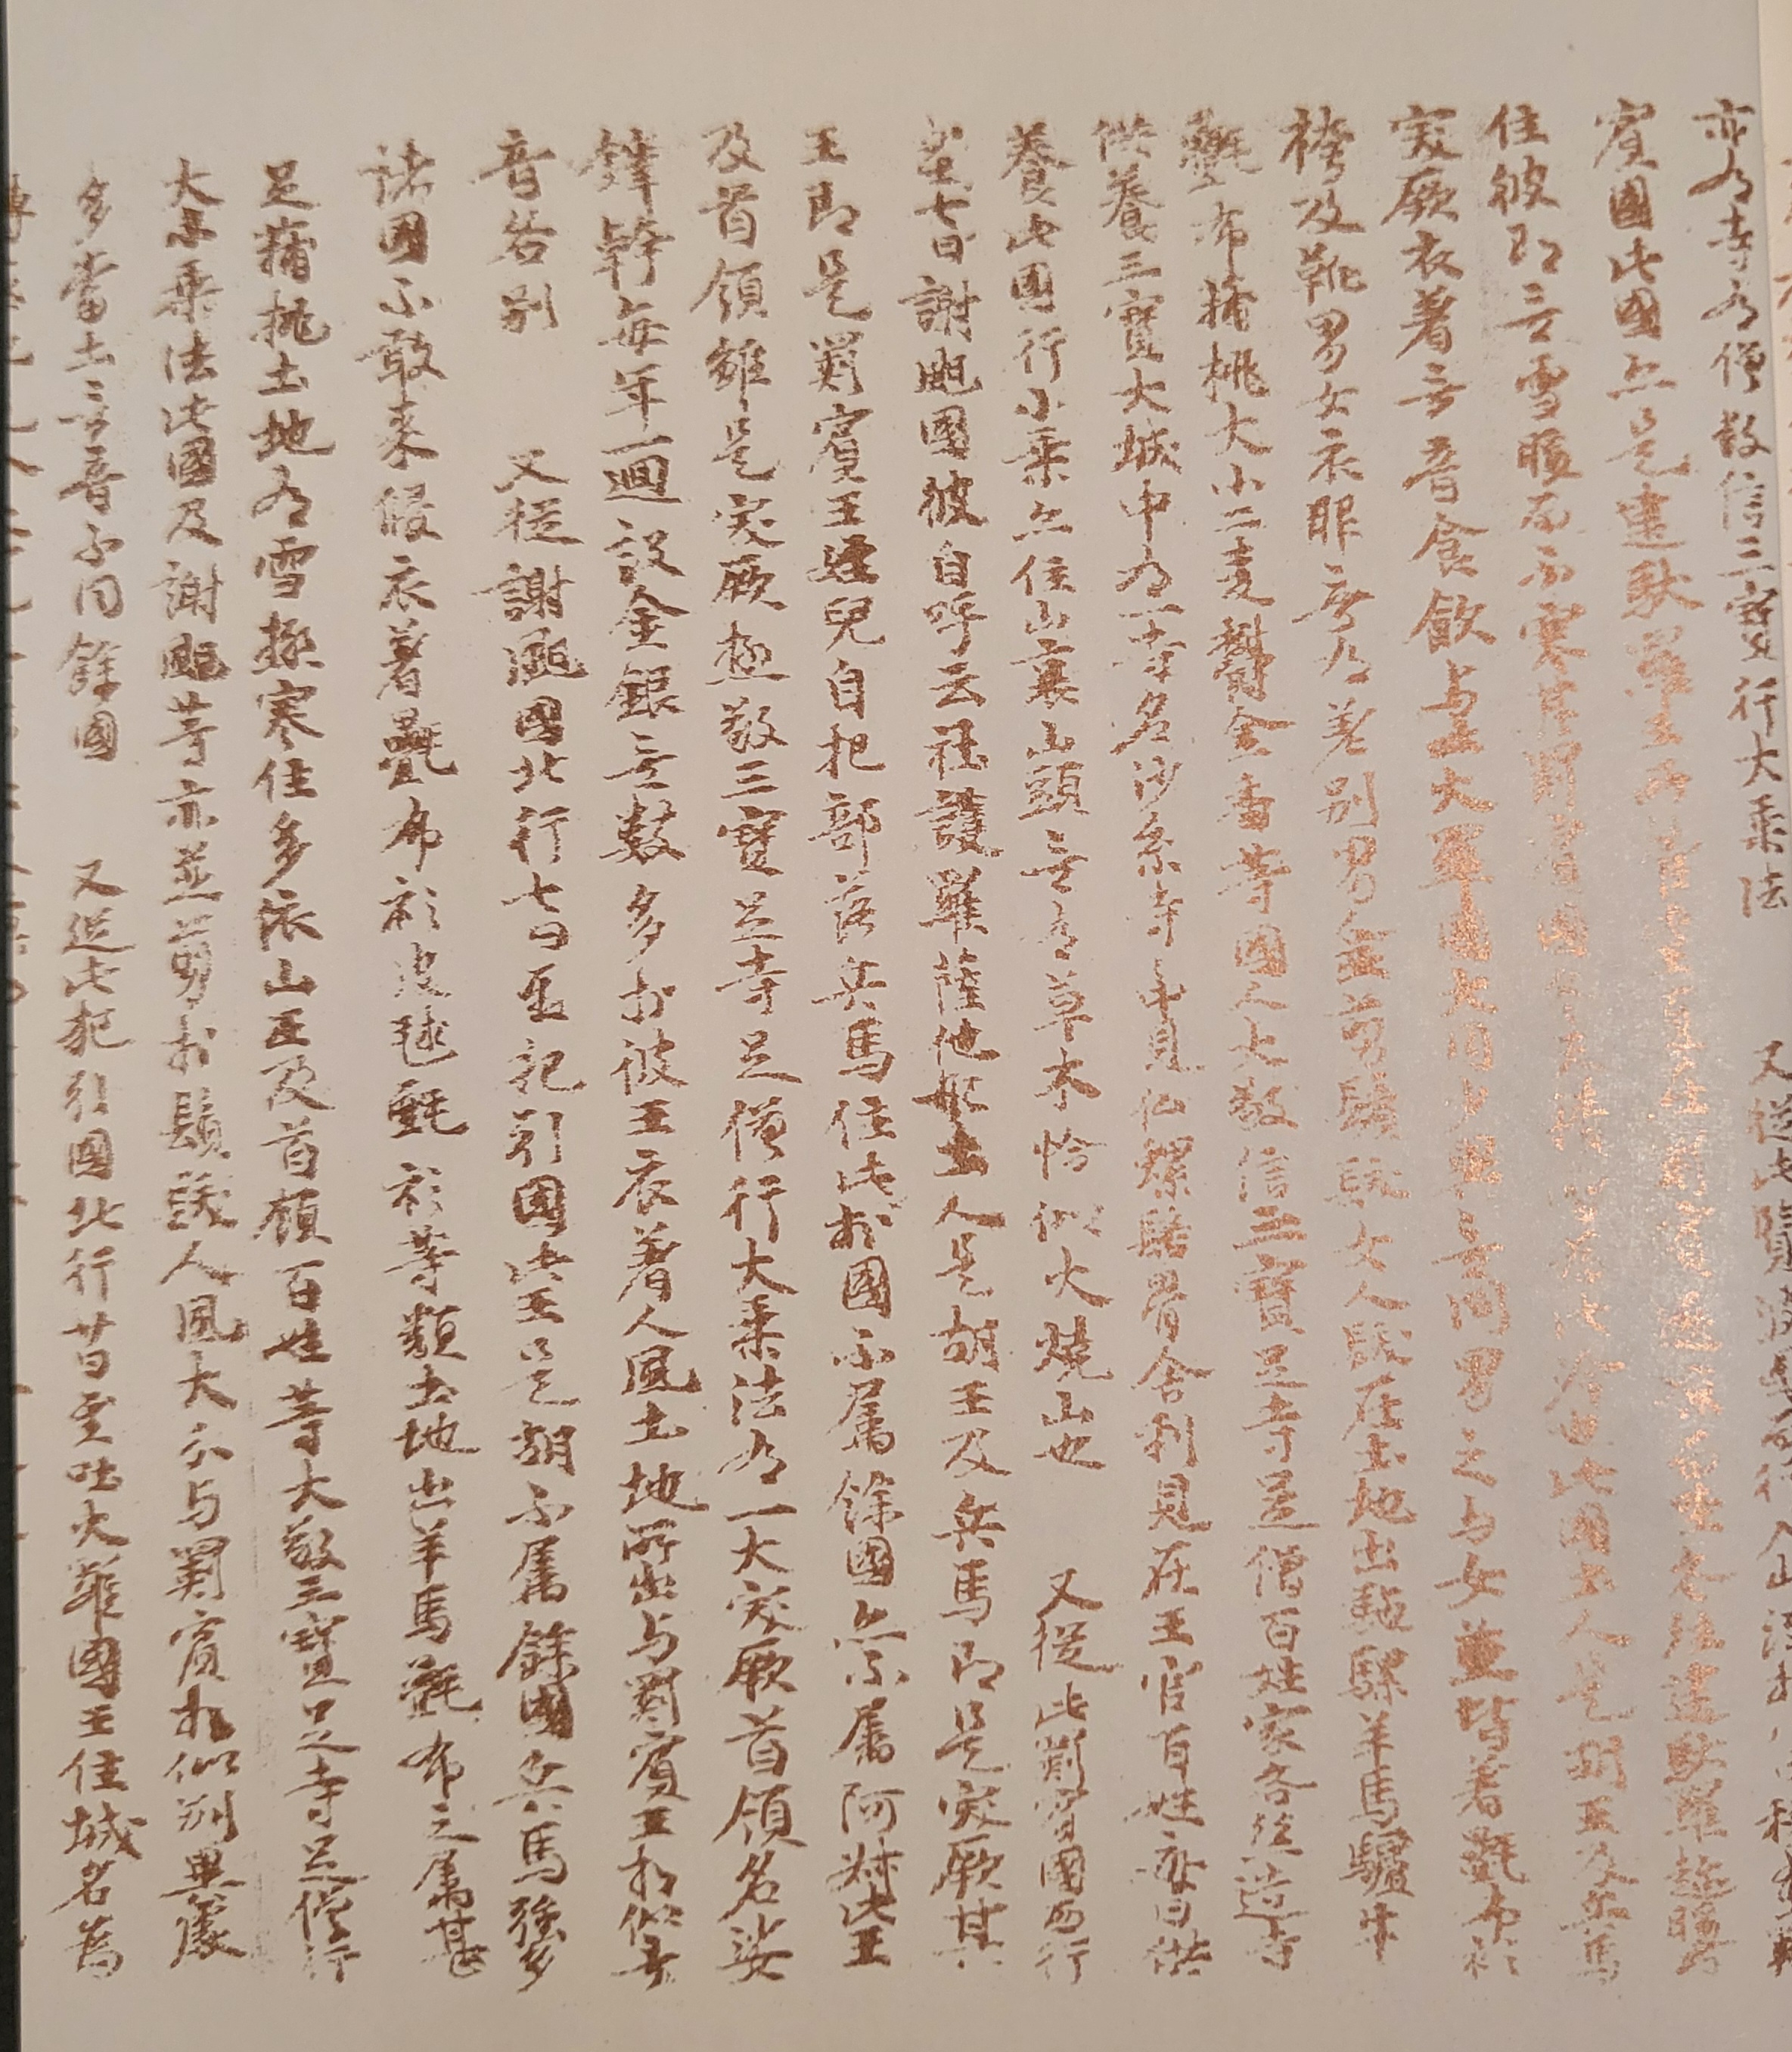 亦有寺有僧敬信三寶行大乘法　又從此覽波國而行入山
賓國此國亦是建馱羅王所管此王夏在罽賓逐涼而坐冬往建馱羅趁暖而
住彼即無雪暖而不寒其罽賓國冬天積雪為此冷也此國土人是胡王及兵馬
突厥衣著言音食飲与吐火羅國大同少異無問男之与女並皆著氎布衫
袴及靴男女衣服無有差別男人並剪鬚髮女人髮在土地出駞騾羊馬驢牛
氎布蒲桃大小二麦欝金香等國人大敬信三寶足寺足僧百姓家各絲造寺
供養三寶大城中有一寺名沙糸寺寺中見仏螺髻骨舍利見在王官百姓每日供
養此國行小乘亦住山裏山頭無有草木恰似火燒山也　又從此罽賓國西行
至七日謝䫻國彼自呼云社護羅薩他那土人是胡王及兵馬即是突厥其
王即是罽賓王姪兒自把部落兵馬住此於國不屬餘國亦不屬阿叔此王
及首領雖是突厥極敬三寶足寺足僧行大乘法有一大突厥首領名娑
鐸幹每年一迴設金銀無數多於彼王衣著人風土地所出与罽賓王相似言
音各別　又從謝䫻國北行七日至犯引國此王是胡不屬餘國兵馬強多
諸國不敢來侵衣著氎布衫皮毬氈衫等類土地出羊馬氎布之屬甚
足蒲桃土地有雪極寒住多依山王及首領百姓等大敬三寶足寺足僧行
大乘法此國及謝䫻等亦並剪於鬚髮人風大分与罽賓相似別異處
多當土言音不同餘國　又從此犯引國北行廿日至吐火羅國王住城名為